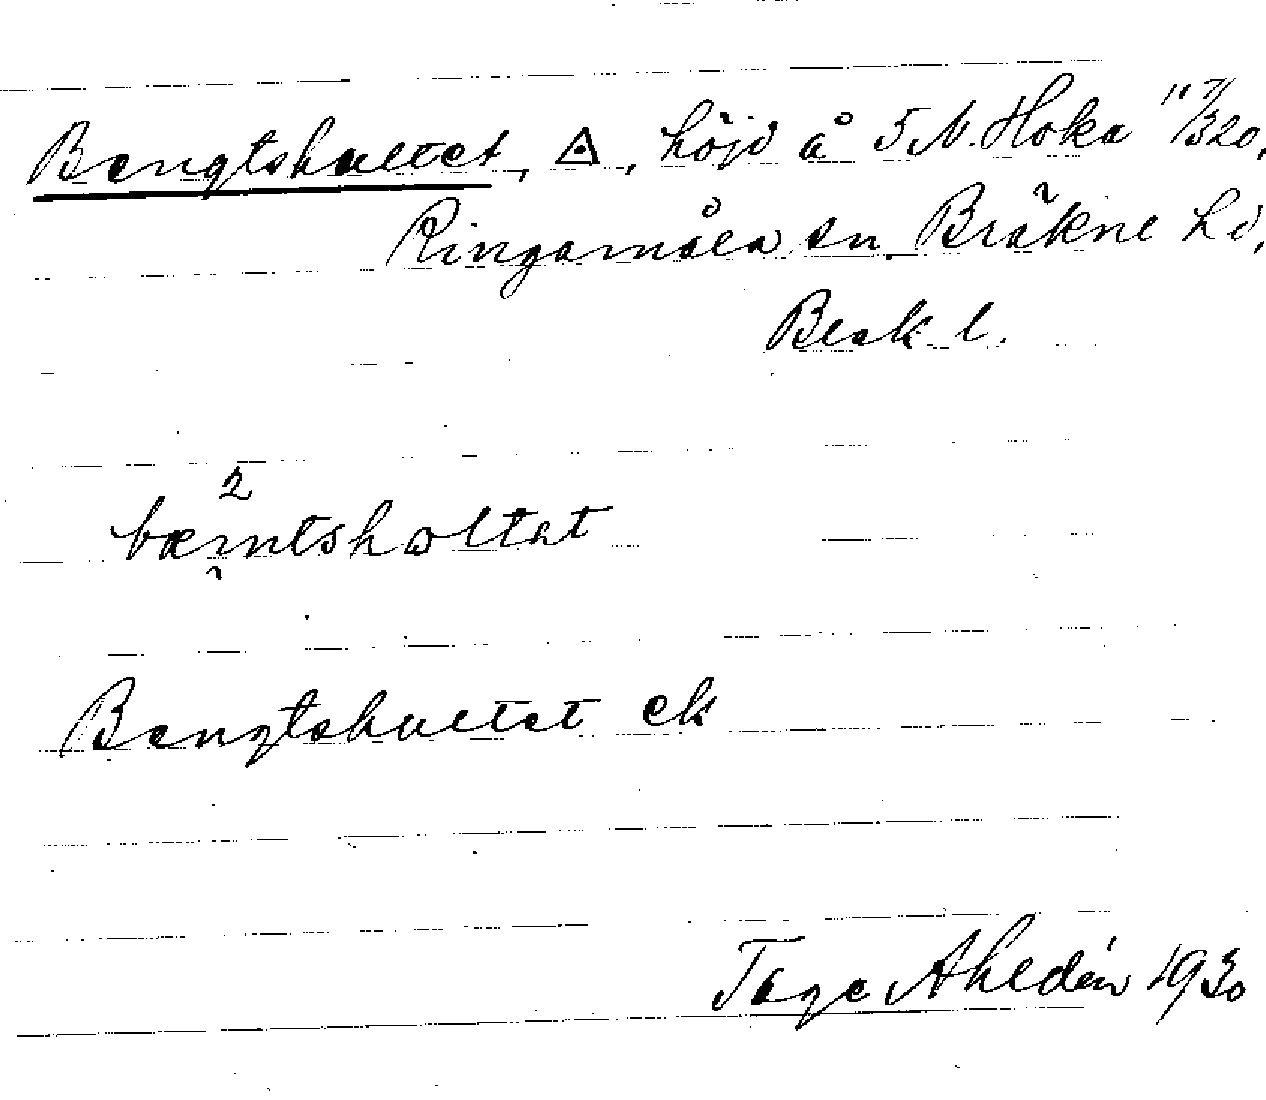 Bengtshultet, △, höjd å 5 N. Hoka 11 7/320,
Ringamåla sn. Bräkne hd,
Blek l.
2
bæmtshɷltət
Bengtshultet ek
Tage Ahldén 1930